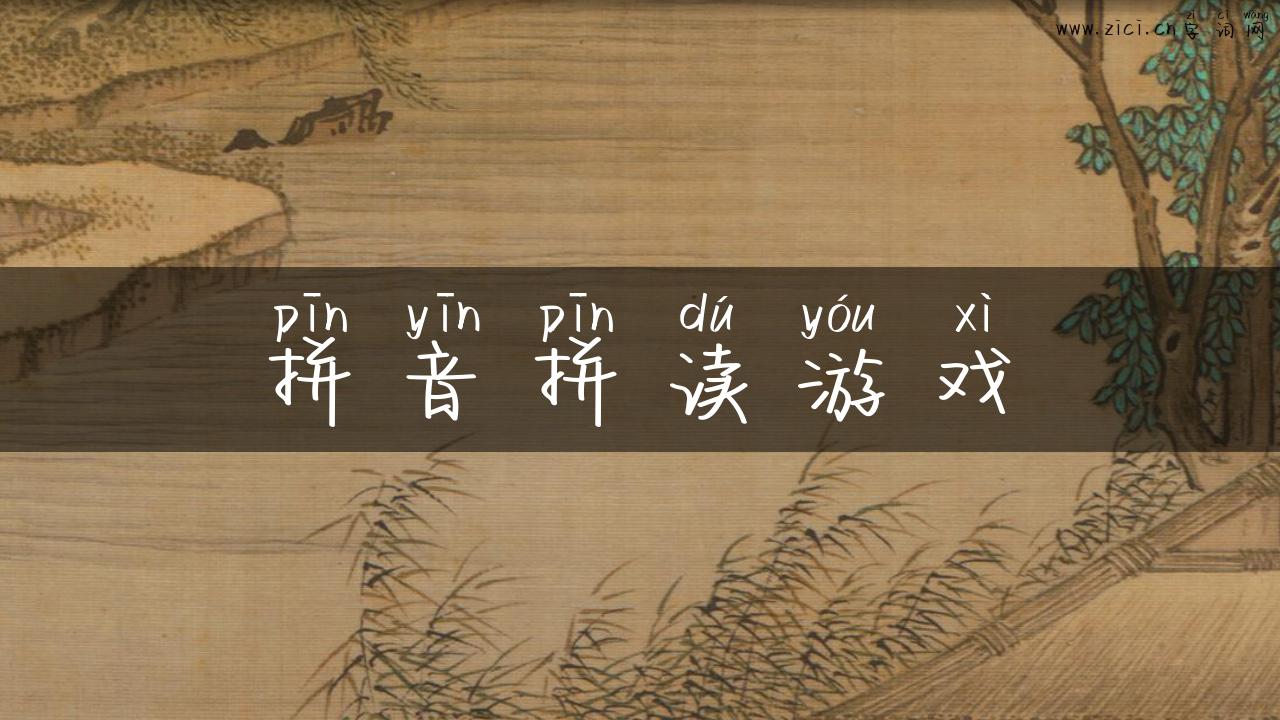 zì cí wǎng
www.zici.cn字词网
pīn yīn pīn dú yóu xì
拼音拼读游戏